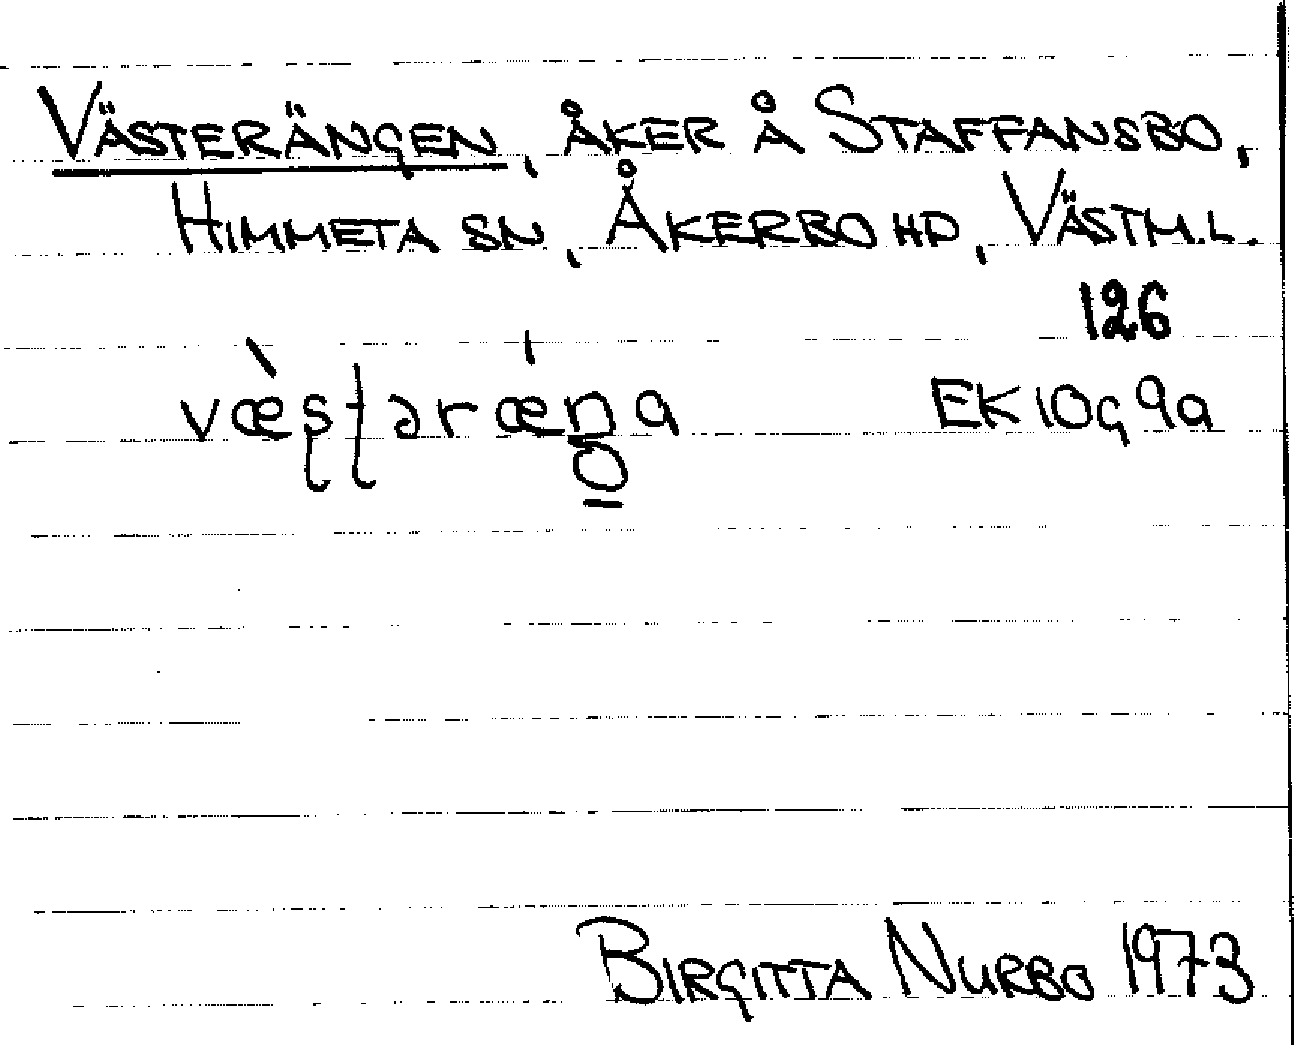 VÄSTERÄNGEN, ÅKER Å STAFFANSBO,
HIMMETA SN, ÅKERBO HD, VÄSTM.L.
126
EK 10G 9a
BIRGITTA NURBO 1973